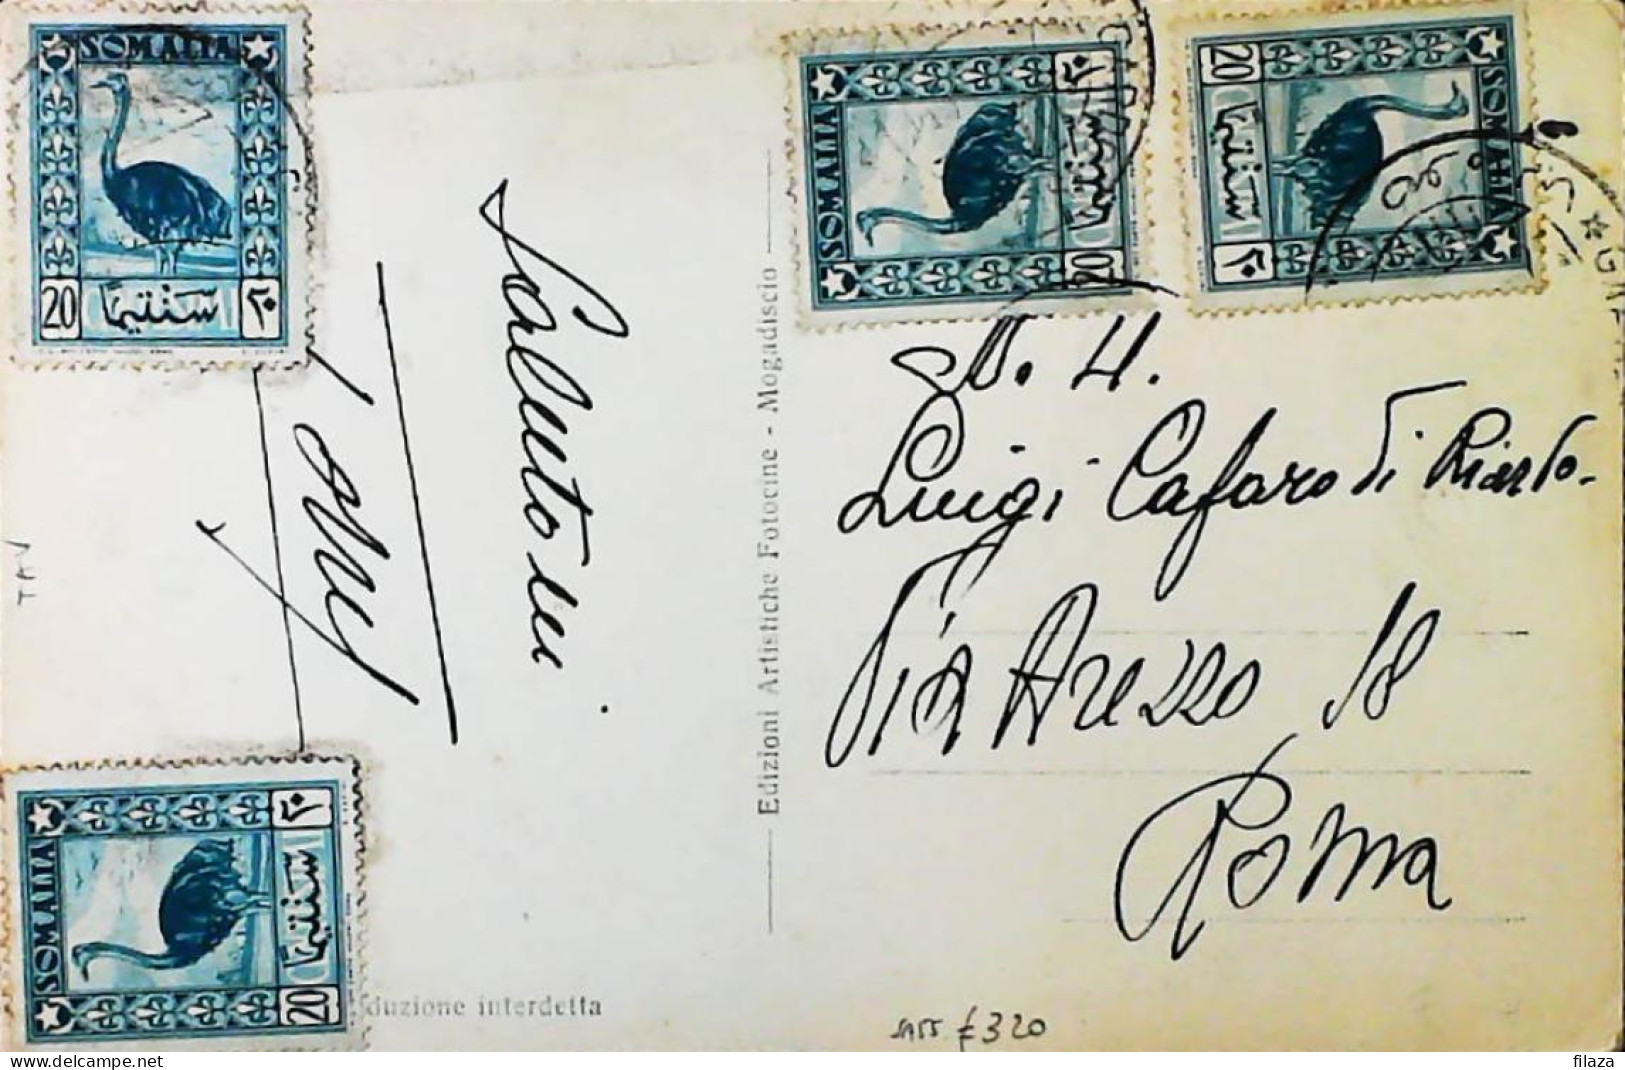 SOMALIA
20 سنتيما ٢٠
SOMALIA
20 سنتيما ٢٠
SOMALIA
20 سنتيما ٢٠
SOMALIA
20 سنتيما ٢٠
Edizioni Artistiche Fotocine - Mogadiscio
duzione interdetta
N. H.
Luigi Cafaro di
Via Arezzo 18
Roma
TAV
SASS £320
filaza